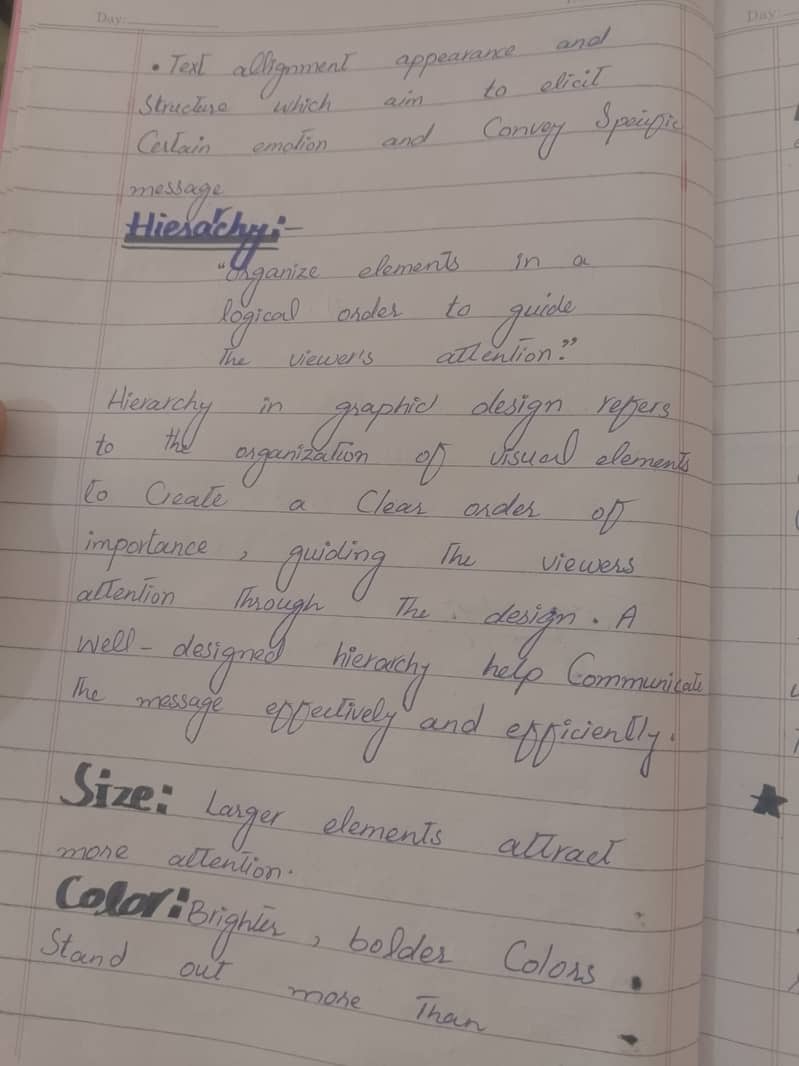 Day:
Day:
• Text allignment appearance and
Structure which aim to elicit
Certain emotion and Convey Specific
message
Hierarchy:-
"Organize elements in a
logical order to guide
The viewer's attention."
Hierarchy in graphic design refers
to the organization of visual elements
to Create a Clear order of
importance, guiding The viewers
attention Through The design. A
well-designed hierarchy help Communicate
The message effectively and efficiently.
Size: Larger elements attract
more attention.
Color: Brighter, bolder Colors
Stand out more Than